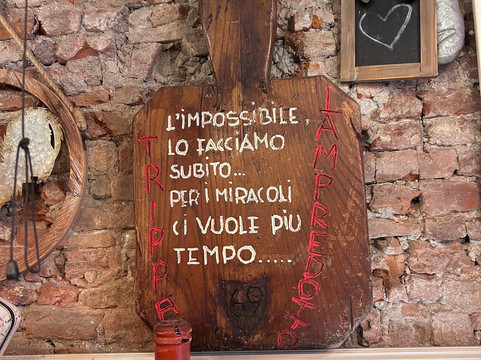 L'IMPOSSIBILE,
LO FACCIAMO
SUBITO...
PER I MIRACOLI
CI VUOLE PIÙ
TEMPO.....
TRIPPA
LAMPREDOTTO